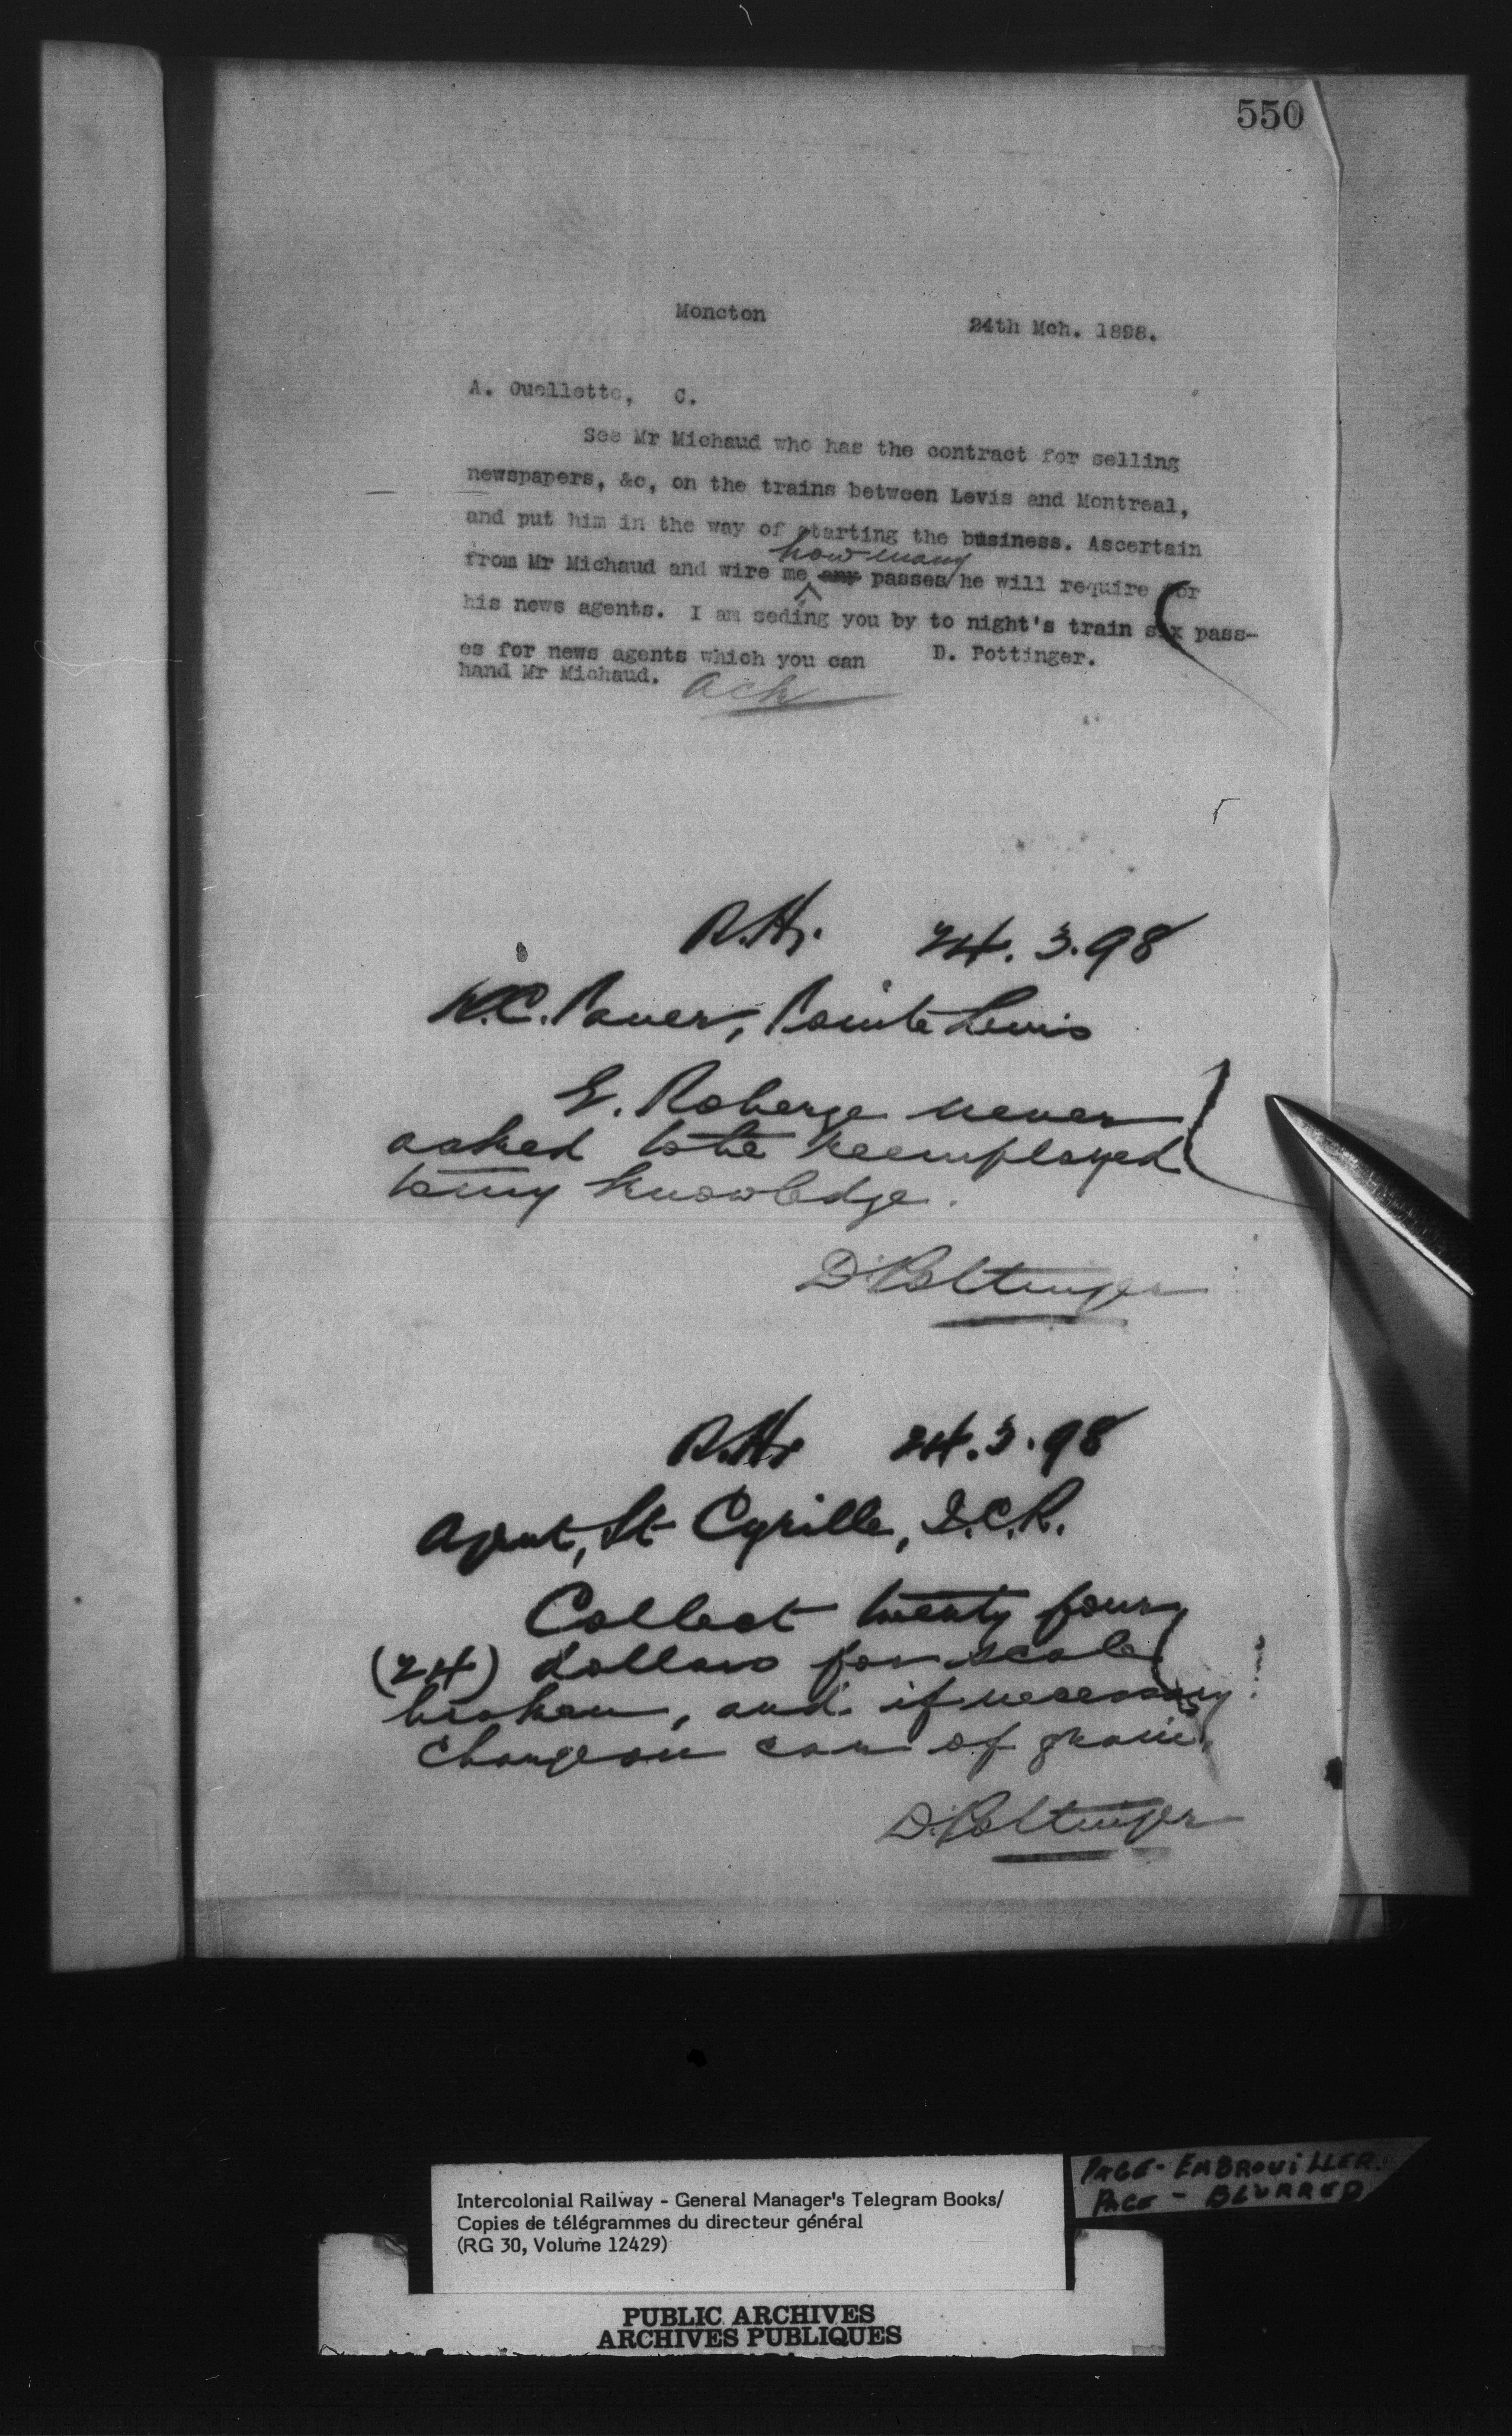 550
Moncton 24th Mch. 1898.
A. Ouellette, C.
See Mr Michaud who has the contract for selling
newspapers, &c, on the trains between Levis and Montreal,
and put him in the way of starting the business. Ascertain
how many
from Mr Michaud and wire me any passes he will require for
his news agents. I am seding you by to night's train six pass-
es for news agents which you can D. Pottinger.
hand Mr Michaud.
ack
R.Hr. 24.3.98
W.C. Paver, Pointe Levis
G. Roberge never
asked to be reemployed
to my knowledge.
D. Pottinger
R.Hr 24.3.98
Agent, St Cyrille, I.C.R.
Collect twenty four
(24) dollars for scale
broken, and if necessary
charge on car of grain.
D. Pottinger
Intercolonial Railway - General Manager's Telegram Books/
Copies de télégrammes du directeur général
(RG 30, Volume 12429)
PAGE - EMBROUILLER.
PAGE - BLURRED
PUBLIC ARCHIVES
ARCHIVES PUBLIQUES